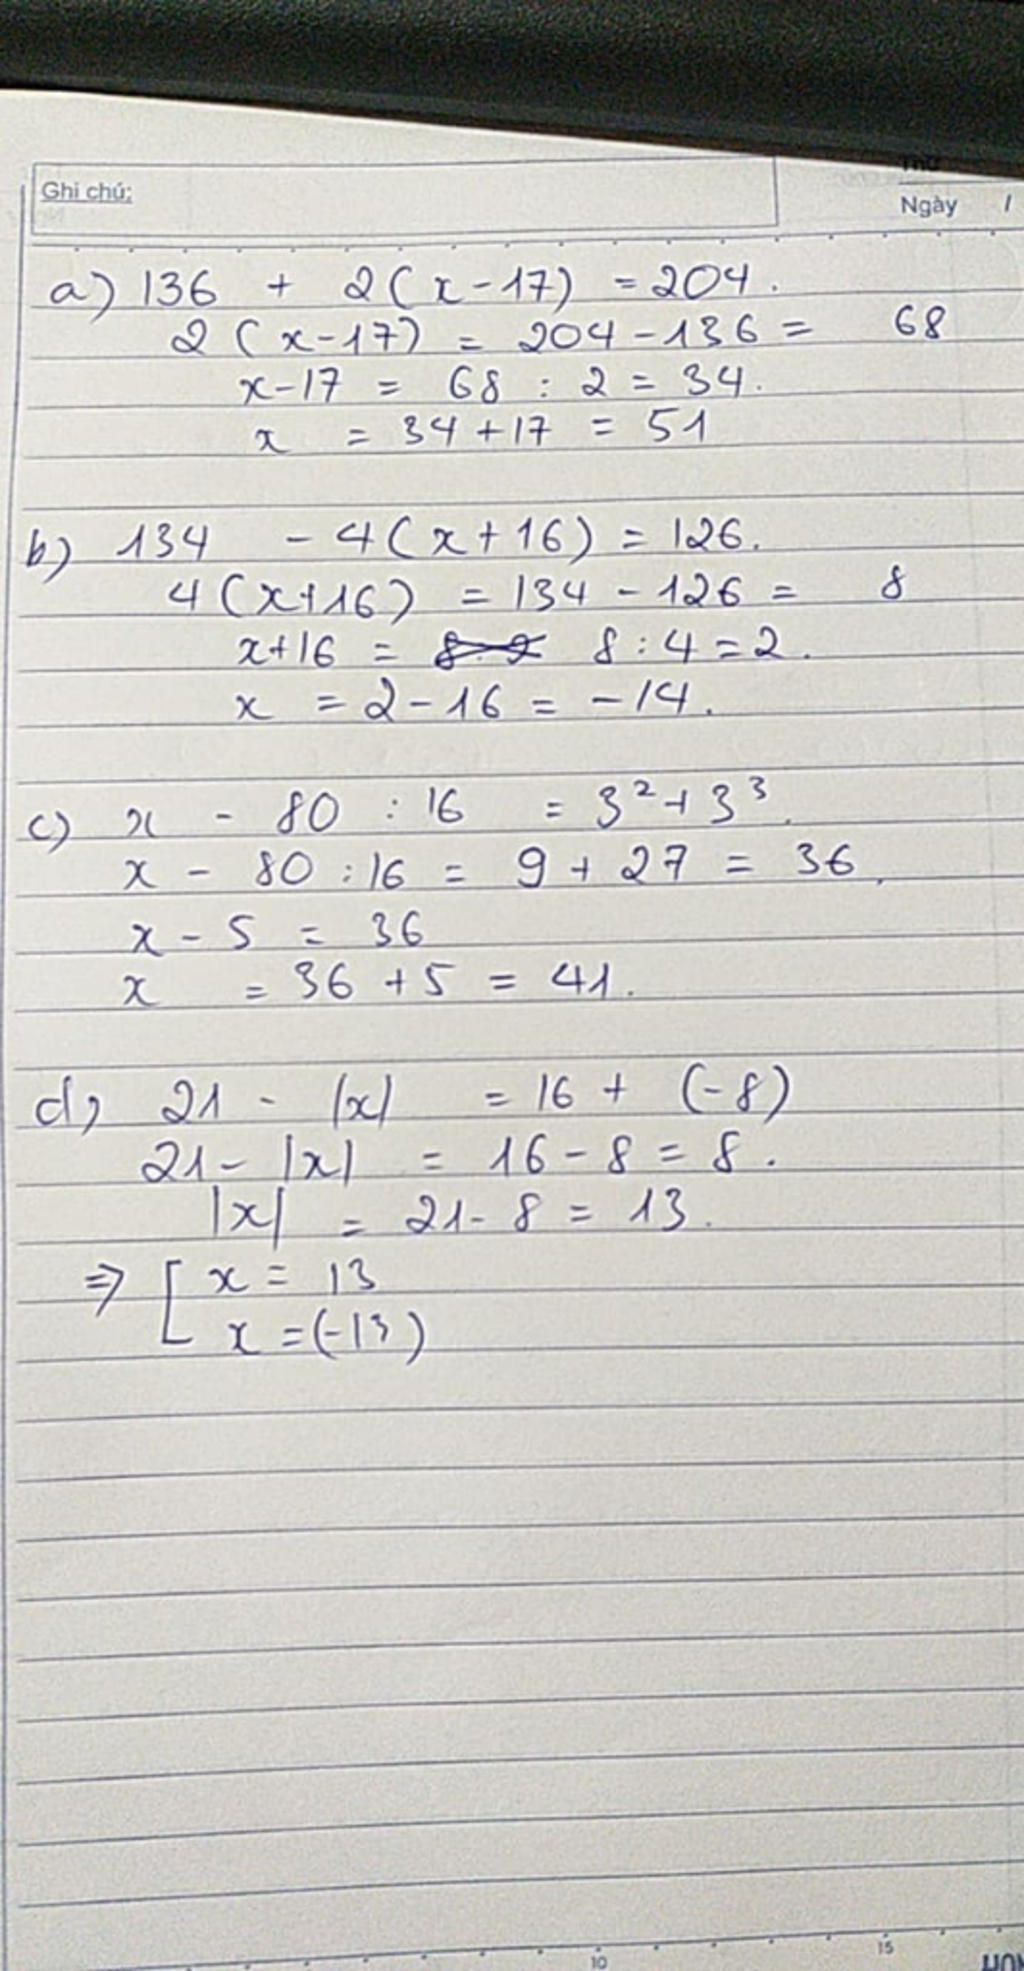 Ghi chú:
Thứ
Ngày /
a) 136 + 2(x-17) = 204.
2(x-17) = 204-136 = 68
x-17 = 68 : 2 = 34.
x = 34+17 = 51
b) 134 - 4(x+16) = 126.
4(x+16) = 134 - 126 = 8
x+16 = 8 : 4 = 2.
x = 2-16 = -14.
c) x - 80 : 16 = 3² + 3³.
x - 80 : 16 = 9 + 27 = 36.
x - 5 = 36
x = 36 + 5 = 41.
d) 21 - |x| = 16 + (-8)
21 - |x| = 16 - 8 = 8.
|x| = 21 - 8 = 13.
⇒ [ x = 13
x = (-13)
10
15